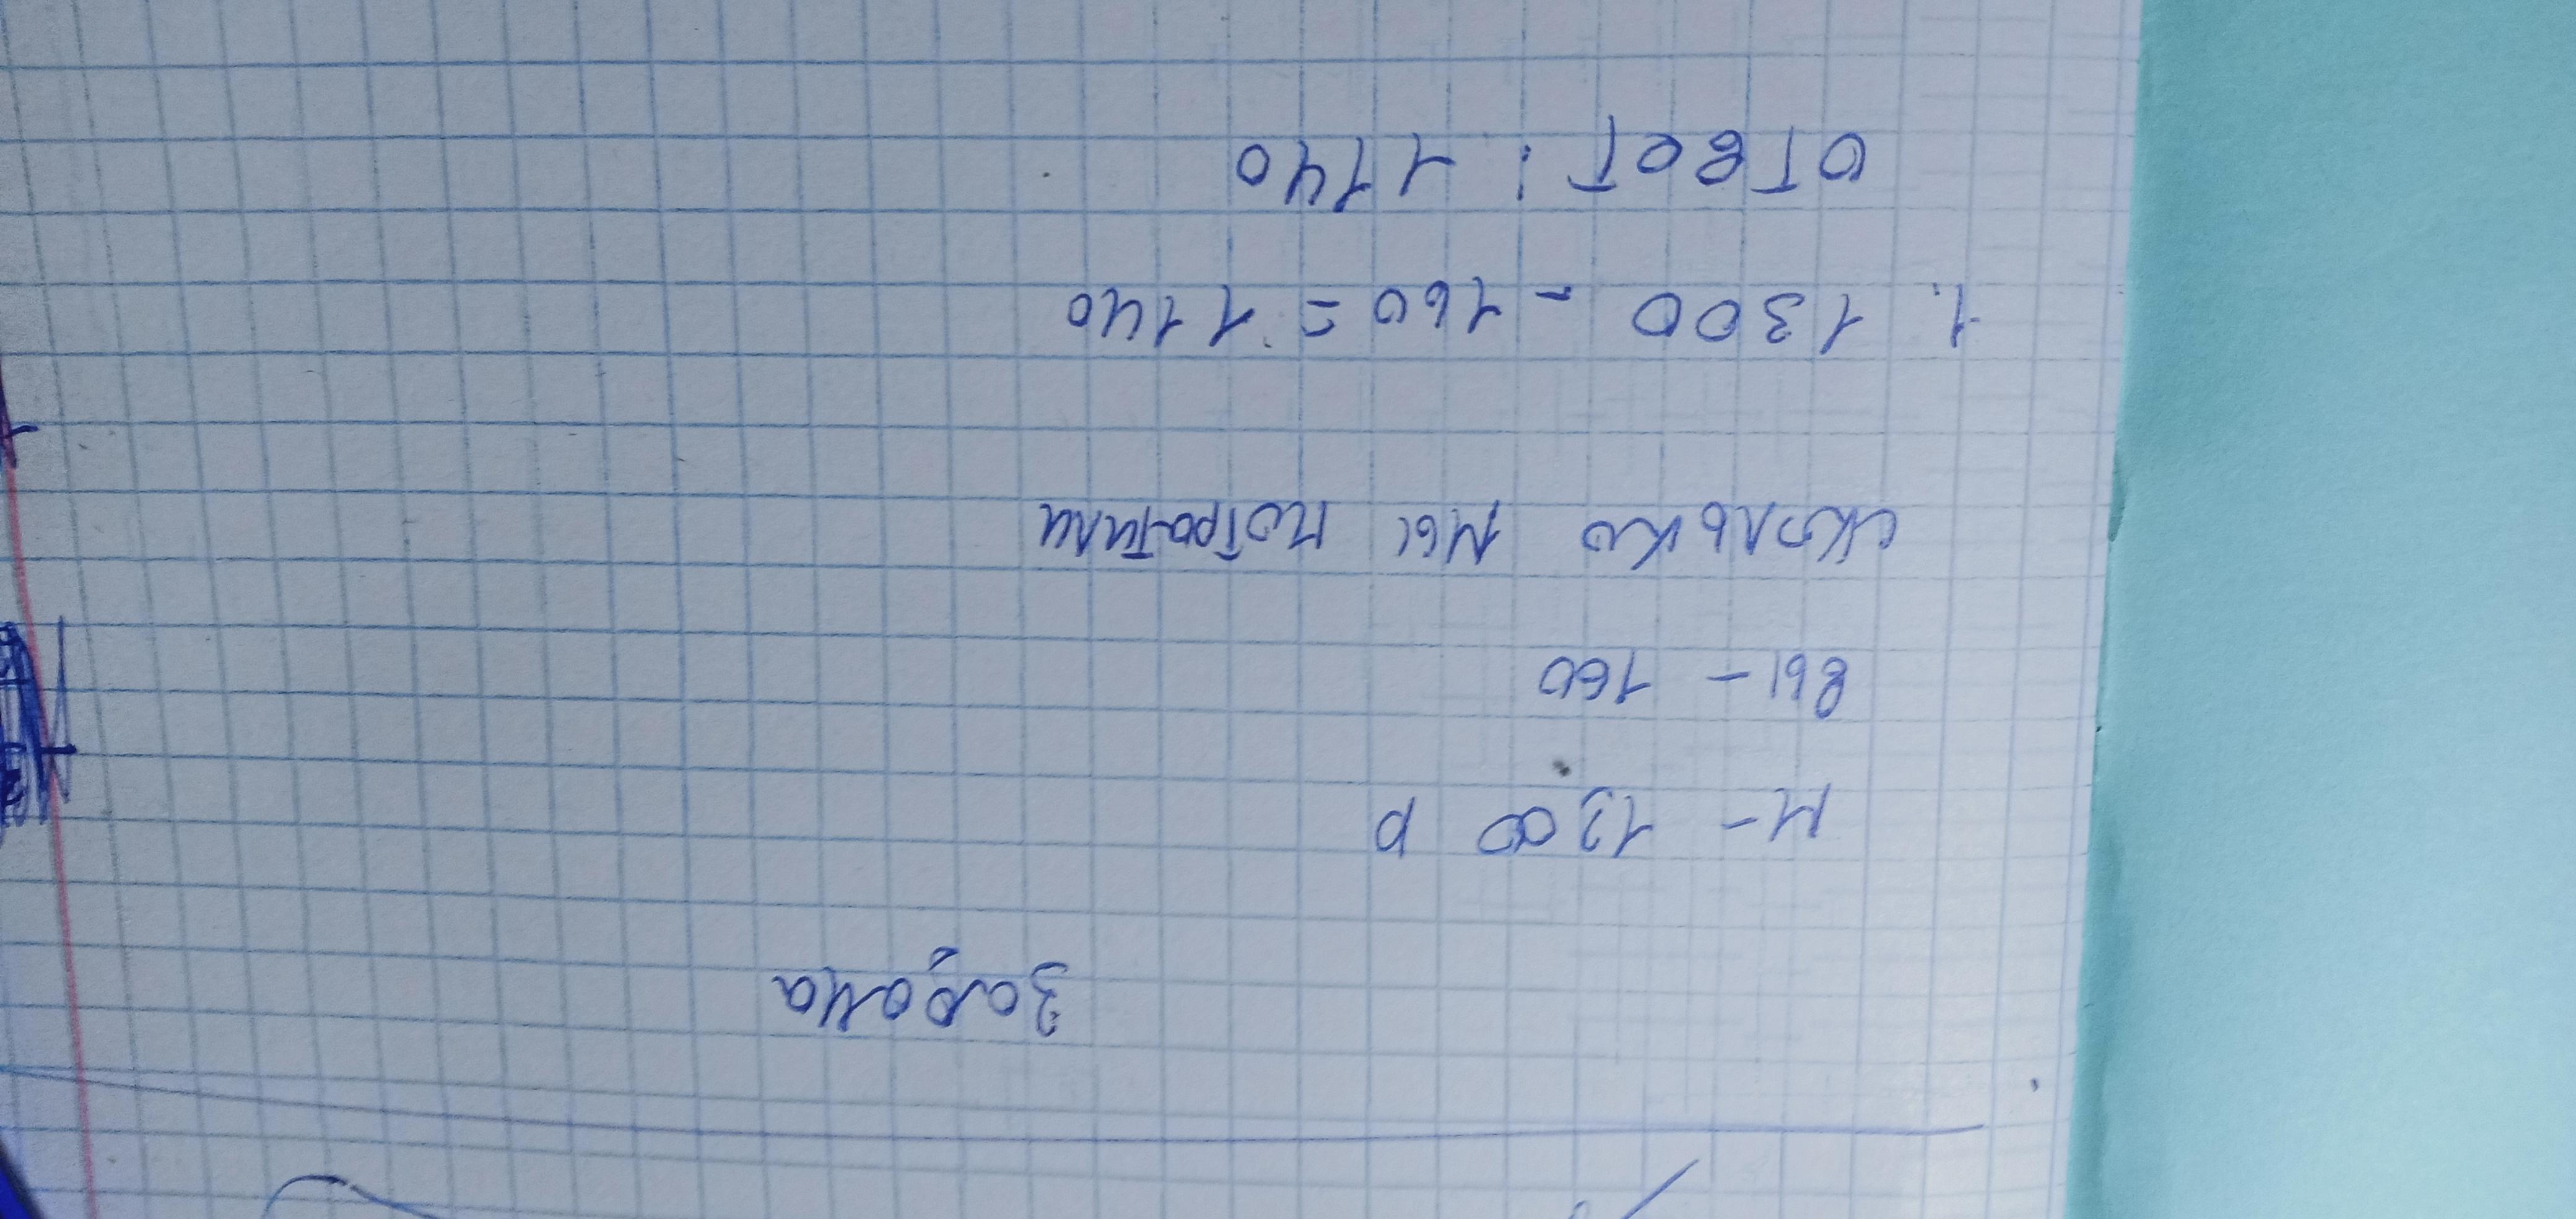 Задача
М - 1300 р
вы - 160
сколько мы потратили
1. 1300 - 160 = 1140
ответ: 1140